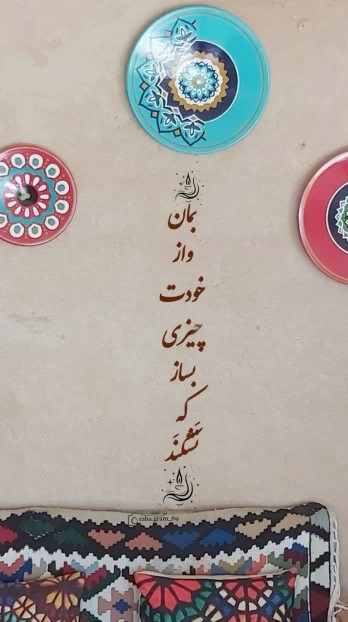 بمان
و از
خودت
چیزی
بساز
که
نشکنَد
taha.gram_69